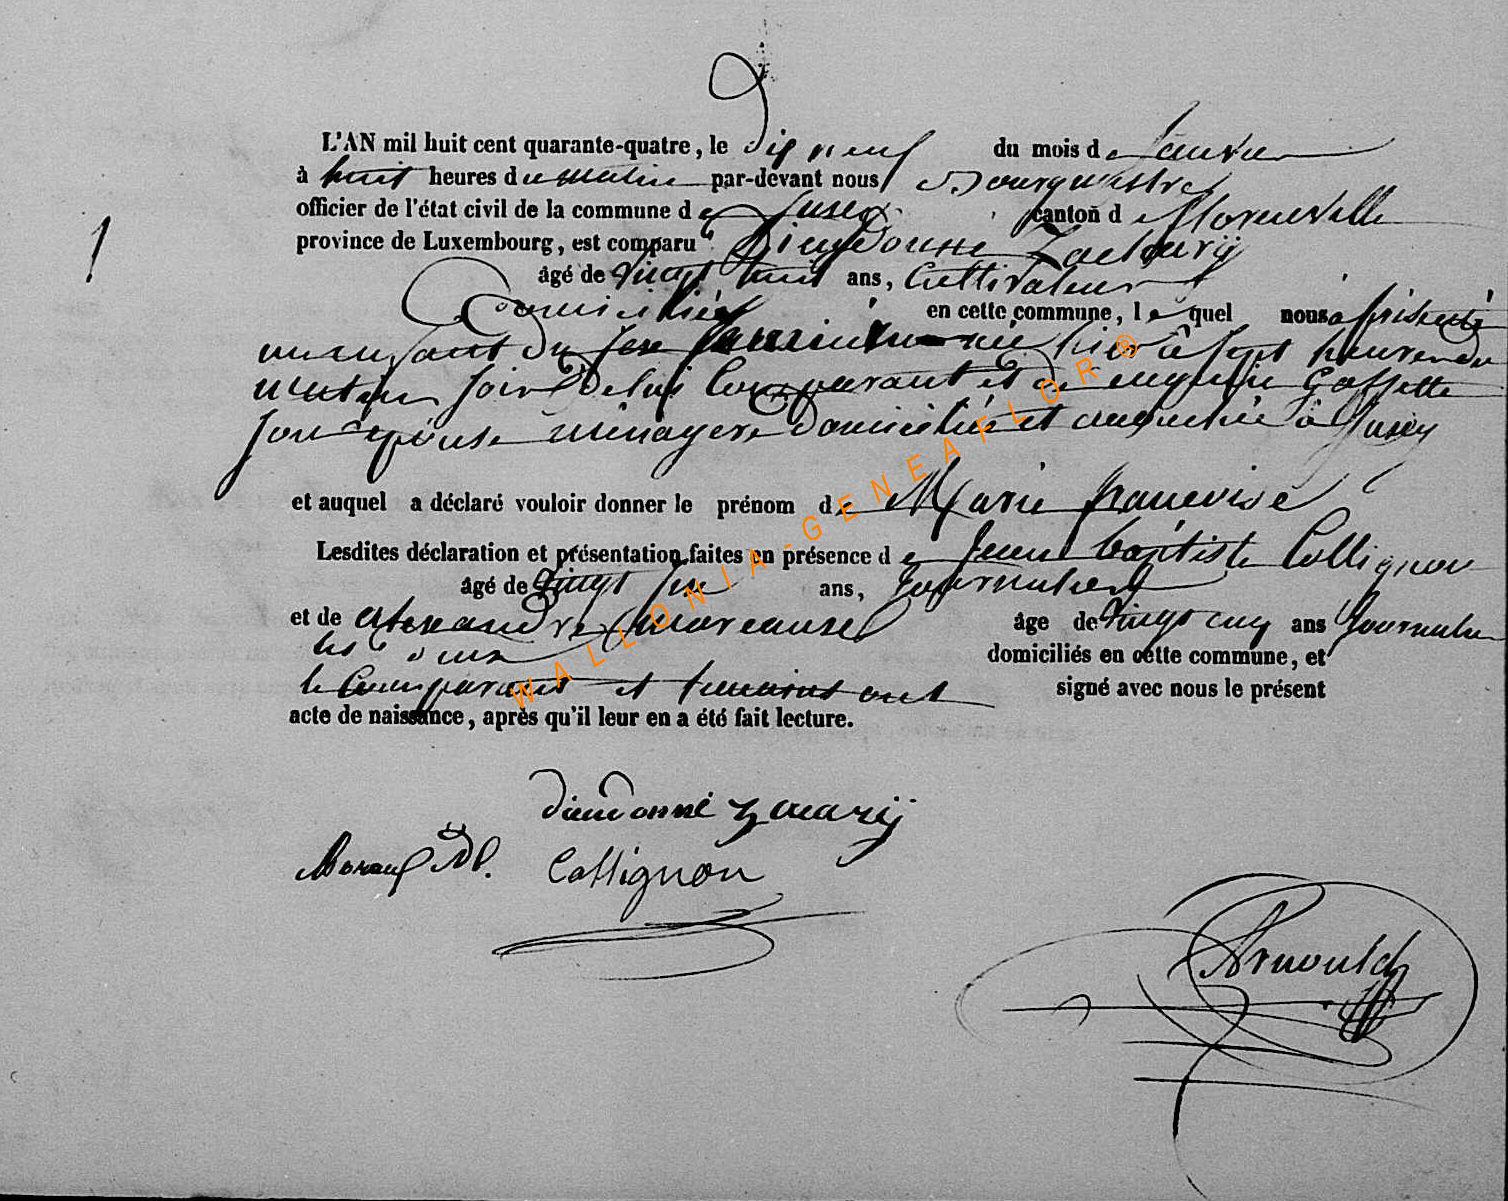 L'AN mil huit cent quarante-quatre, le dix neuf du mois de Janvier
à huit heures du matin par-devant nous Bourgmestre
officier de l'état civil de la commune de Jusey canton de Florenville
province de Luxembourg, est comparu Dieudonné Zacharÿ
âgé de vingt huit ans, Cultivateur
domicilié en cette commune, lequel nous a présenté
un enfant du sexe féminin né hier à sept heures du
soir de lui Comparant et de Gossette
son épouse ménagere domiciliée et à Jusey
et auquel a déclaré vouloir donner le prénom de Marie francoise
Lesdites déclaration et présentation faites en présence de Jean baptiste Collignon
âgé de vingt six ans, Journalier
et de alexandre âge de vingt cinq ans Journalier
les deux domiciliés en cette commune, et
le Comparant et temoins ont signé avec nous le présent
acte de naissance, après qu'il leur en a été fait lecture.
dieudonné zacarij
Collignon
Arnould
1
WALLONIA-GENEAFLOR®